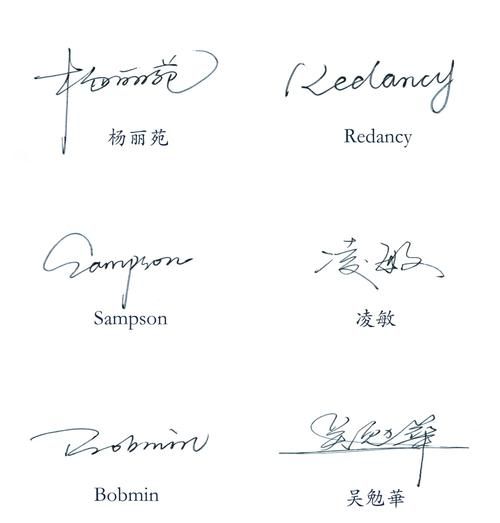 杨丽苑
Redancy
杨丽苑
Redancy
Sampson
凌敏
Sampson
凌敏
Bobmin
吴勉華
Bobmin
吴勉華